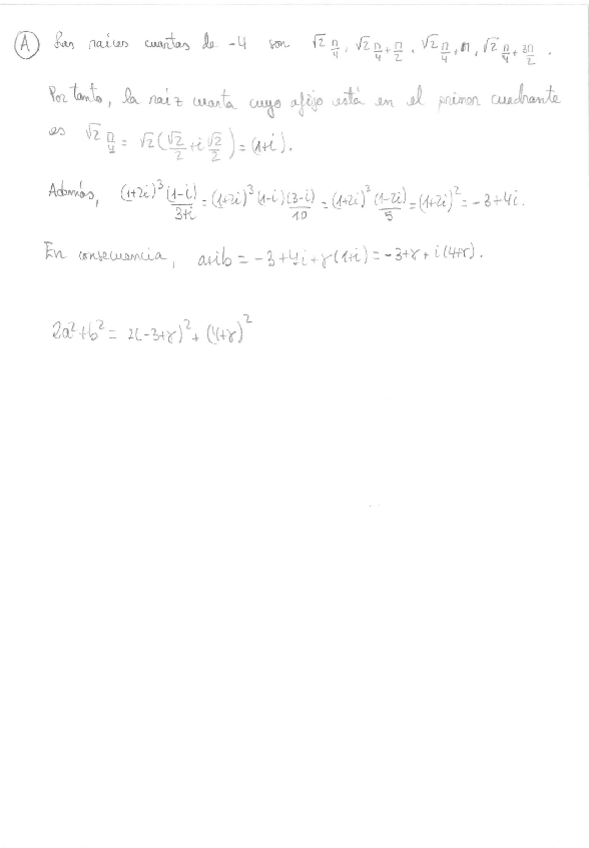 (A) Las raíces cuartas de -4 son √2 π/4, √2 π/4+π/2, √2 π/4+π, √2 π/4+3π/2.
Por tanto, la raíz cuarta cuyo afijo está en el primer cuadrante
es √2 π/4 = √2(√2/2 + i √2/2) = (1+i).
Además, (1+2i)^3 (1-i)/(3+i) = (1+2i)^3 (1-i) (3-i)/10 = (1+2i)^3 (1-2i)/5 = (1+2i)^2 = -3+4i.
En consecuencia, a+ib = -3+4i+γ(1+i) = -3+γ+i(4+γ).
2a^2+b^2 = 2(-3+γ)^2 + (4+γ)^2